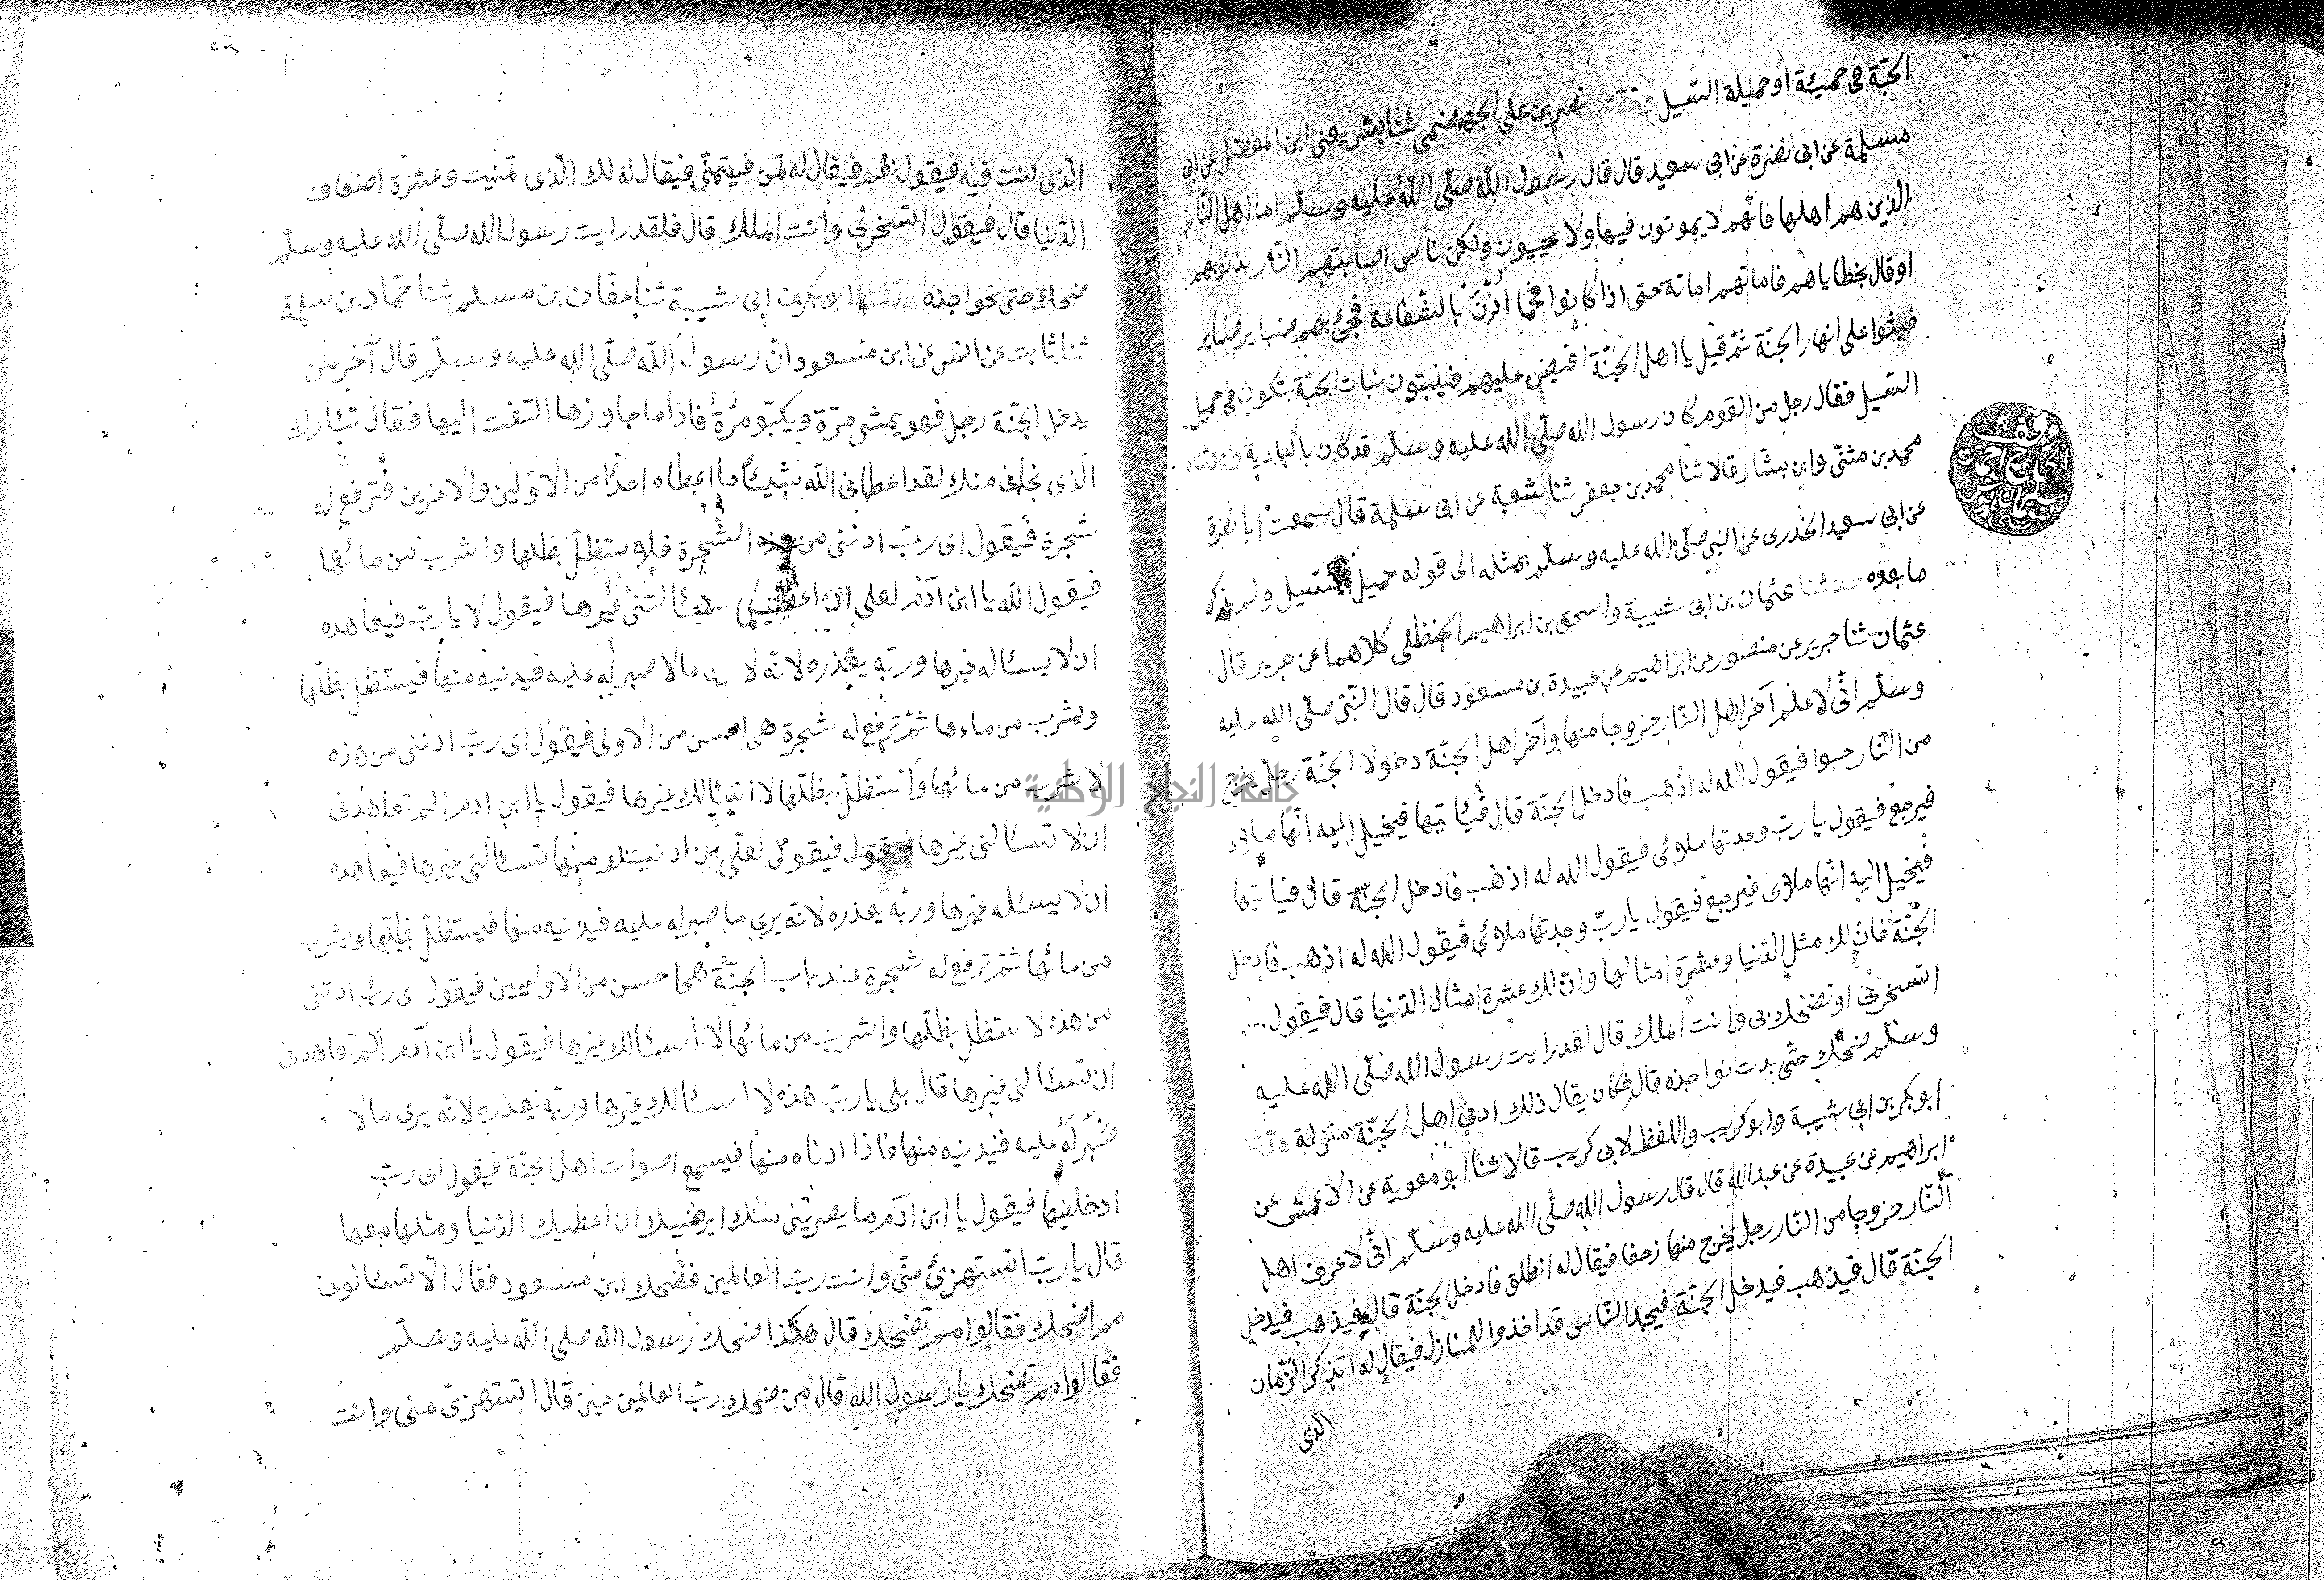 الحبّة في حميئة او حميلة السّيل وحدثنى نصر بن علي الجهضمى ثنا بشر يعنى ابن المفضل عن ابى
مسلمة عن ابى نضرة عن ابى سعيد قال قال رسول اللّه صلّى اللّه عليه وسلّم اما اهل النّار
الذين هم اهلها فانّهم لا يموتون فيها ولا يحييون ولكن ناس اصابتهم النّار بذنوبهم
او قال بخطاياهم فاماتهم اماتة حتى اذا كانوا فحما اذن بالشّفاعة فجئ بهم ضباير ضباير
فبثوا على انهار الجنّة ثمّ قيل يا اهل الجنّة افيض عليهم فينبتون نبات الحبّة تكون في حميل
السّيل فقال رجل من القوم كان رسول الله صلّى الله عليه وسلّم قد كان بالبادية وحدثناه
محمد بن مثنّى وابن بشّار قالا ثنا محمد بن جعفر ثنا شعبة عن ابى سلمة قال سمعت ابا نضرة
عن ابى سعيد الخدرى عن النبي صلّى الله عليه وسلّم بمثله الى قوله حميل السّيل ولم يذكر
ما بعده حدثنا عثمان بن ابى شيبة واسحق بن ابراهيم الحنظلى كلاهما عن جرير قال
عثمان ثنا جرير عن منصور عن ابراهيم عن عبيدة بن مسعود قال قال النّبيّ صلّى الله عليه
وسلّم انّى لاعلم آخر اهل النّار خروجا منها وآخر اهل الجنّة دخولا الجنّة رجل يخرج
من النّار حبوا فيقول الله له اذهب فادخل الجنّة قال فيأتيها فيخيل اليه انّها ملاى
فيرجع فيقول يا ربّ وجدتها ملاىٔ فيقول الله له اذهب فادخل الجنّة قال فياتيها
فيخيل اليه انّها ملاى فيرجع فيقول يا ربّ وجدتها ملاىٔ فيقول الله له اذهب فادخل
الجنّة فانّ لك مثل الدّنيا وعشرة امثالها وانّ لك عشرة امثال الدّنيا قال فيقول
اتسخر بى او تضحك بى وانت الملك قال لقد رايت رسول الله صلّى الله عليه
وسلّم ضحك حتّى بدت نواجذه قال فكان يقال ذلك ادنى اهل الجنّة منزلة حدّثنا
ابو بكر بن ابى شيبة وابو كريب واللفظ لابى كريب قالا ثنا ابو معوية عن الاعمش عن
ابراهيم عن عبيدة عن عبد الله قال قال رسول الله صلّى الله عليه وسلّم انّى لاعرف اهل
النّار خروجا من النّار رجل يخرج منها زحفا فيقال له انطلق فادخل الجنّة قال فيذهب فيدخل
الجنّة قال فيذهب فيدخل الجنّة فيجد النّاس قد اخذوا المنازل فيقال له اتذكر الزّمان
الذى
الّذى كنت فيه فيقول نعم فيقال له تمنّ فيتمنّى فيقال له لك الّذى تمنيت وعشرة اضعاف
الدّنيا قال فيقول اتسخر لى وانت الملك قال فلقد رايت رسول الله صلّى الله عليه وسلّم
ضحك حتى نواجذه حدّثنا ابو بكر بن ابى شيبة ثنا عفّان بن مسلم ثنا حمّاد بن سلمة
ثنا ثابت عن انس عن ابن مسعود انّ رسول اللّه صلّى الله عليه وسلّم قال آخر من
يدخل الجنّة رجل فهو يمشى مرّة ويكبّو مرّة فاذا ما جاوزها التفت اليها فقال تبارك
الّذى نجانى منك لقد اعطانى اللّه شيئا ما اعطاه احدا من الاوّلين والاخرين فترفع له
شجرة فيقول اى ربّ ادننى من هذه الشّجرة فلاستظلّ بظلها واشرب من مائها
فيقول اللّه يا ابن آدم لعلى ان اعطيتكها سئالتنى غيرها فيقول لا يا ربّ فيعاهده
ان لا يسئاله غيرها وربّه يعذره لانّه ما لا صبر له عليه فيدنيه منها فيستظلّ بظلّها
ويشرب من ماءها ثمّ ترفع له شجرة هى احسن من الاولى فيقول اى ربّ ادننى من هذه
لاشرب من مائها واستظلّ بظلّها لا اسئالك غيرها فيقول يا ابن ادم الم تعاهدنى
ان لا تسئالنى غيرها فيقول فيقول لعلّى ان ادنيتك منها تسئالنى غيرها فيعاهده
ان لا يسئله غيرها وربّه يعذره لانّه يرى ما صبر له عليه فيدنيه منها فيستظلّ بظلّها ويشرب
من مائها ثمّ ترفع له شجرة عند باب الجنّة هى احسن من الاوليين فيقول اى ربّ ادننى
من هذه لاستظلّ بظلّها واشرب من مائها لا اسئالك غيرها فيقول يا ابن آدم الم تعاهدنى
ان تسئالنى غيرها قال بلى يا ربّ هذه لا اسئالك غيرها وربّه يعذره لانّه يرى ما لا
صبر له عليه فيدنيه منها فاذا ادناه منها فيسمع اصوات اهل الجنّة فيقول اى ربّ
ادخلنيها فيقول يا ابن آدم ما يصرينى منك ايرضيك ان اعطيك الدّنيا ومثلها معها
قال يا ربّ اتستهزئ منّى وانت ربّ العالمين فضحك ابن مسعود فقال الا تسئالونى
مم اضحك فقالوا مم تضحك قال هكذا ضحك رسول اللّه صلى اللّه عليه وسلّم
فقالوا مم تضحك يا رسول الله قال من ضحك ربّ العالمين حين قال اتستهزئ منى وانت
جامعة النجاح الوطنية